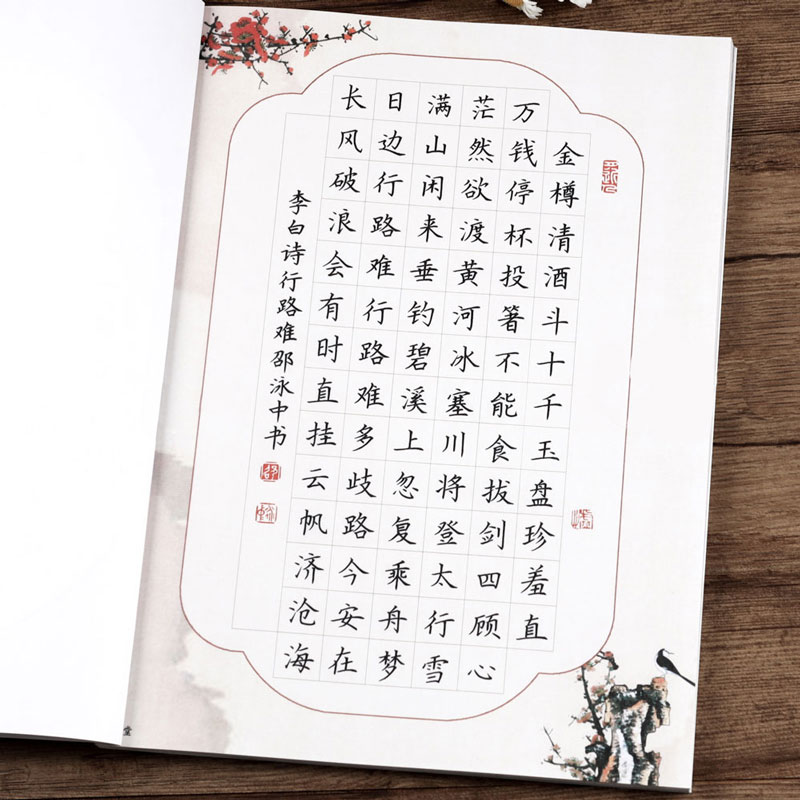 金樽清酒斗十千玉盘珍羞直
万钱停杯投箸不能食拔剑四顾心
茫然欲渡黄河冰塞川将登太行雪
满山闲来垂钓碧溪上忽复乘舟梦
日边行路难行路难多歧路今安在
长风破浪会有时直挂云帆济沧海
李白诗行路难邵泳中书
堂